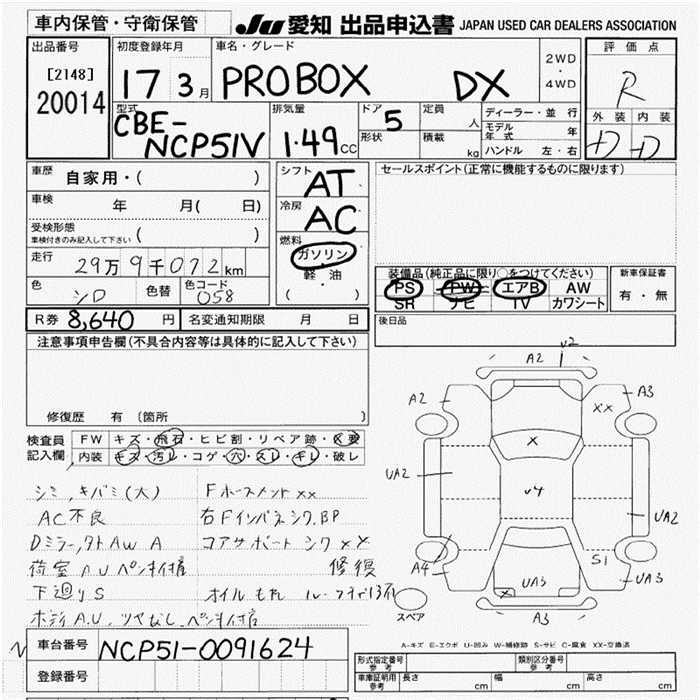 車内保管・守衛保管
JU 愛知 出品申込書 JAPAN USED CAR DEALERS ASSOCIATION
出品番号
[2148]
20014
初度登録年月
17 3月
車名・グレード
PROBOX DX
2WD
・
4WD
評価点
R
外装 内装
D D
型式
CBE-
NCP51V
排気量
1.49 CC
ドア 5
形状
定員 人
積載 kg
ディーラー・並行
モデル年式 年
ハンドル 左・右
車歴 自家用・( )
車検 年 月( 日)
受検形態
車検付きのみ記入して下さい ( )
走行 29万9千072km
色 シロ 色替 色コード 058
シフト AT
冷房 AC
燃料
ガソリン
・
軽・油
( )
セールスポイント(正常に機能するものに限ります)
装備品(純正品に限り○をつけてください)
PS PW エアB AW
SR ナビ TV カワシート
新車保証書
有・無
R券 8,640 円 名変通知期限 月 日
後日品
注意事項申告欄(不具合内容等は具体的に記入して下さい)
修復歴 有 〔箇所
検査員
記入欄
FW キズ・飛石・ヒビ割・リペア跡・X要
内装 キズ・汚レ・コゲ・穴・スレ・キレ・破レ
シミ,キバミ(大) Fホースメント xx
AC不良 右Fインパネ シワ.BP
Dミラー,タトAW A コアサポート シワ xx
荷室 A.U ペンキ付着 修復
下廻りS オイルもれ
ボディA.U,ツヤなし,ペンキ付着
A2
V2
A2
A3
XX
X
UA2
V4
UA2
A4
S1
UA3
UA3
X
A3
スペア
A-キズ E-エクボ U-凹み W-補修跡 S-サビ C-腐食 XX-交換済
車台番号 NCP51-0091624
登録番号
形式指定番号
参考
類別区分番号
参考
車庫証明用
参考
長さ cm 幅 cm 高さ cm